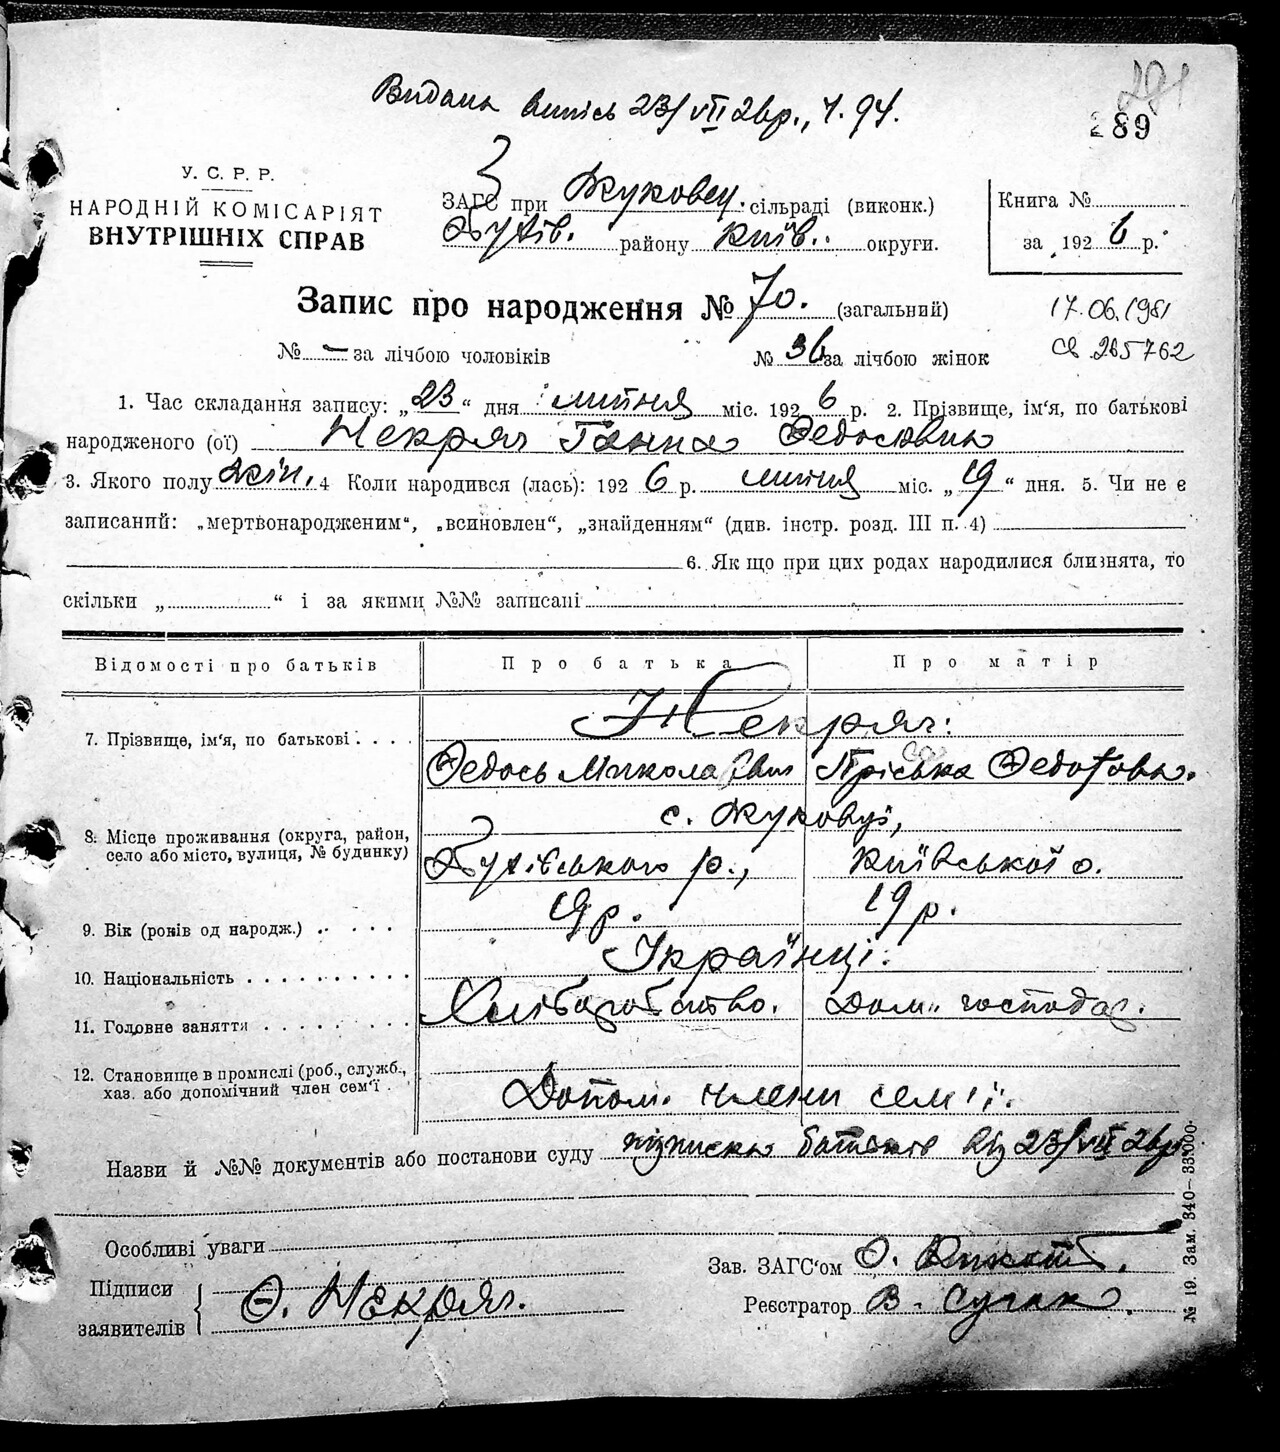 Видана випись 23/VII 26р., ч. 94.
291
289
У. С. Р. Р.
НАРОДНІЙ КОМІСАРІЯТ
ВНУТРІШНІХ СПРАВ
ЗАГС при Жуковец. сільраді (виконк.)
району Київ. округи.
Книга №
за 1926 р.
Запис про народження № 70. (загальний)
17.06.1981
св 265762
№ – за лічбою чоловіків № 36 за лічбою жінок
1. Час складання запису: „23“ дня липня міс. 1926 р. 2. Прізвище, ім‘я, по батькові
народженого (ої) Некряч Ганна Федосіївна
3. Якого полу жін. 4 Коли народився (лась): 1926 р. липня міс. „19“ дня. 5. Чи не є
записаний: „мертвонародженим“, „всиновлен“, „знайденням“ (див. інстр. розд. III п. 4)
6. Як що при цих родах народилися близнята, то
скільки „ “ і за якими №№ записані
Відомості про батьків Про батька Про матір
Некряч:
7. Прізвище, ім‘я, по батькові
Федось Миколаєвич Пріська Федотовн.
с. Жуковці,
8. Місце проживання (округа, район,
село або місто, вулиця, № будинку)
р., Київської о.
19 р. 19 р.
9. Вік (років од народж.)
Українці.
10. Національність
Хліборобство. Дом. господар.
11. Головне заняття
12. Становище в промислі (роб., служб.,
хаз. або допомічний член сем‘ї
Допом. члени сем'ї.
Назви й №№ документів або постанови суду підписка батьків від 23/VII 26р
Особливі уваги
Зав. ЗАГС‘ом О.
Підписи
заявителів Ф. Некряч.
Реєстратор В. Сугак.
№ 19. Зам. 340–33.000